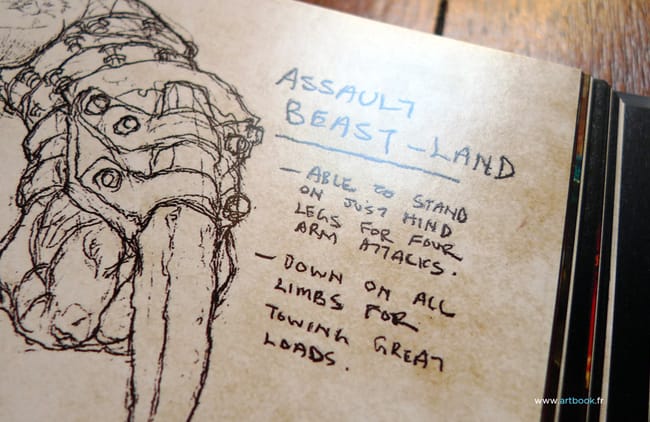 ASSAULT
BEAST - LAND
- ABLE TO STAND
ON JUST HIND
LEGS FOR FOUR
ARM ATTACKS.
- DOWN ON ALL
LIMBS FOR
TOWING GREAT
LOADS.
www.artbook.fr